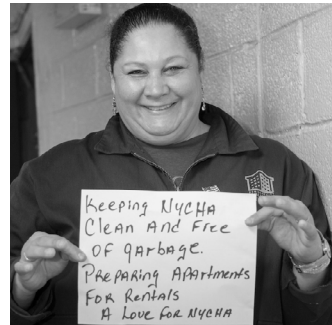 Keeping NYCHA
Clean And Free
OF garbage.
Preparing Apartments
For Rentals
A Love For NYCHA